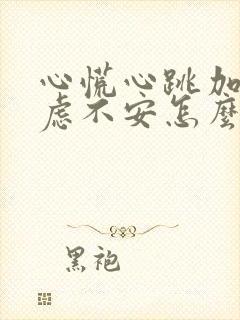 心慌心跳加
虑不安怎麽
黑袍